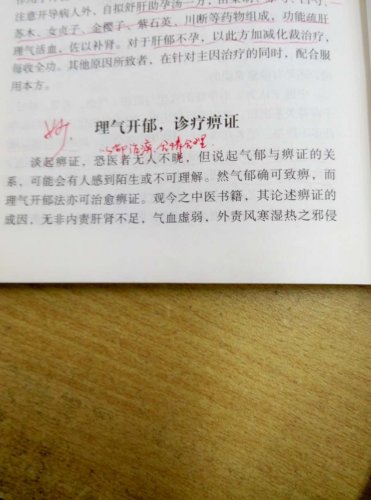 注意开导病人外，自拟舒肝助孕汤一方，由柴胡
苏木、女贞子、金樱子、紫石英、川断等药物组成，功能疏肝
理气活血，佐以补肾。对于肝郁不孕，以此方加减化裁治疗，
每收全功。其他原因所致者，在针对主因治疗的同时，配合服
用本方。
妙
理气开郁，诊疗痹证
谈起痹证，恐医者无人不晓，但说起气郁与痹证的关
系，可能会有人感到陌生或不可理解。然气郁确可致痹，而
理气开郁法亦可治愈痹证。观今之中医书籍，其论述痹证的
或因，无非内责肝肾不足，气血虚弱，外责风寒湿热之邪侵